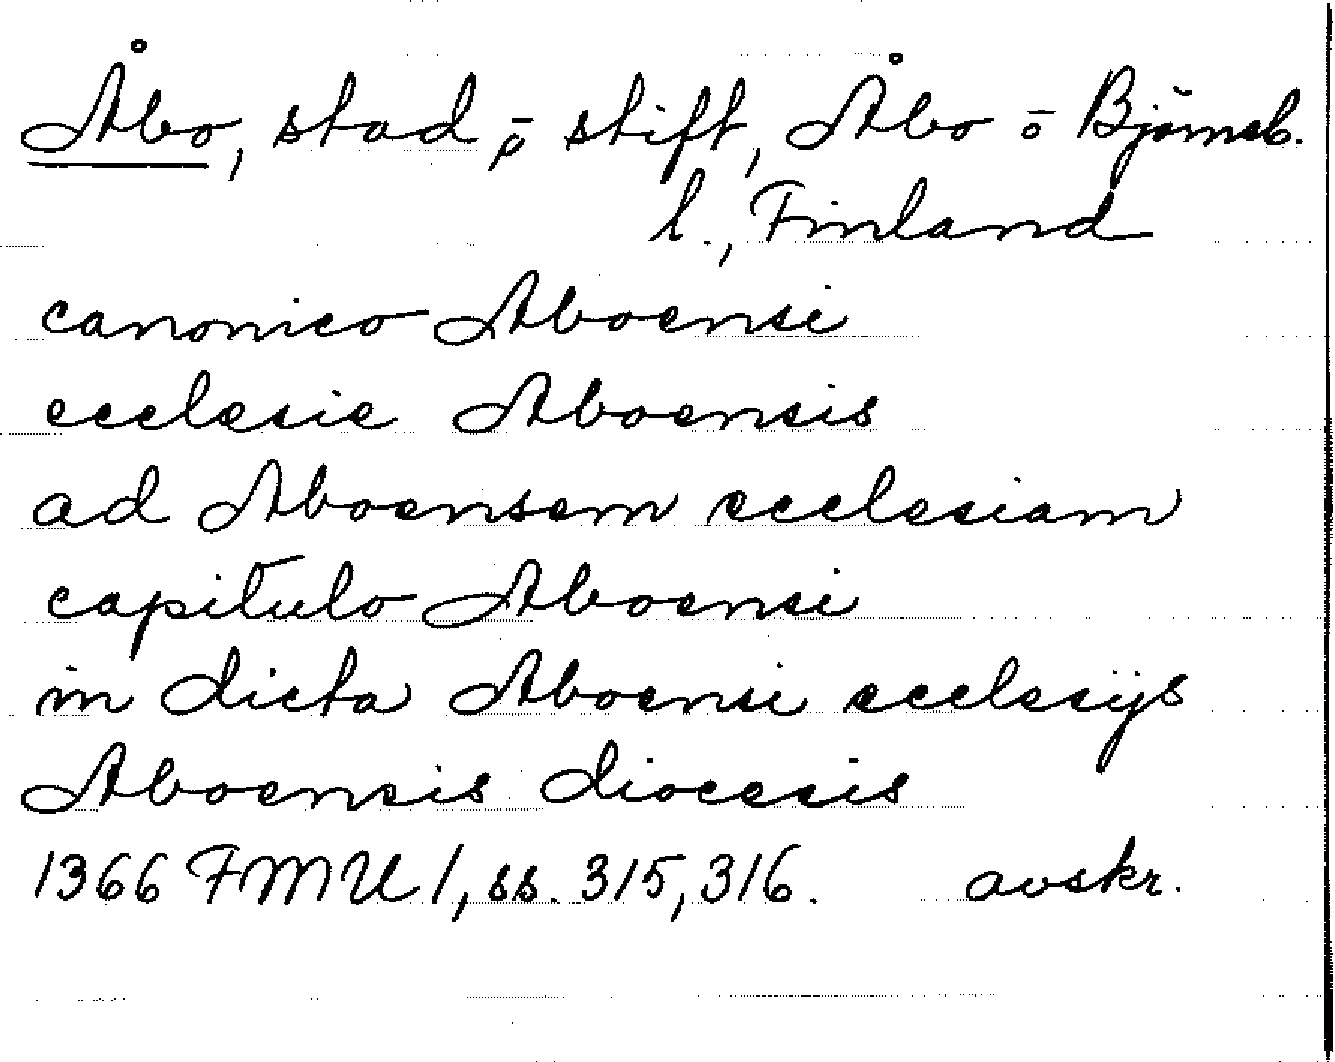 Åbo, stad, ō stift, Åbo ō Björneb.
l., Finland
canonico Aboensi
ecclesie Aboensis
ad Aboensem ecclesiam
capitulo Aboensi
in dicta Aboensi ecclesijs
Aboensis diocesis
1366 FMU 1, ss. 315, 316. avskr.